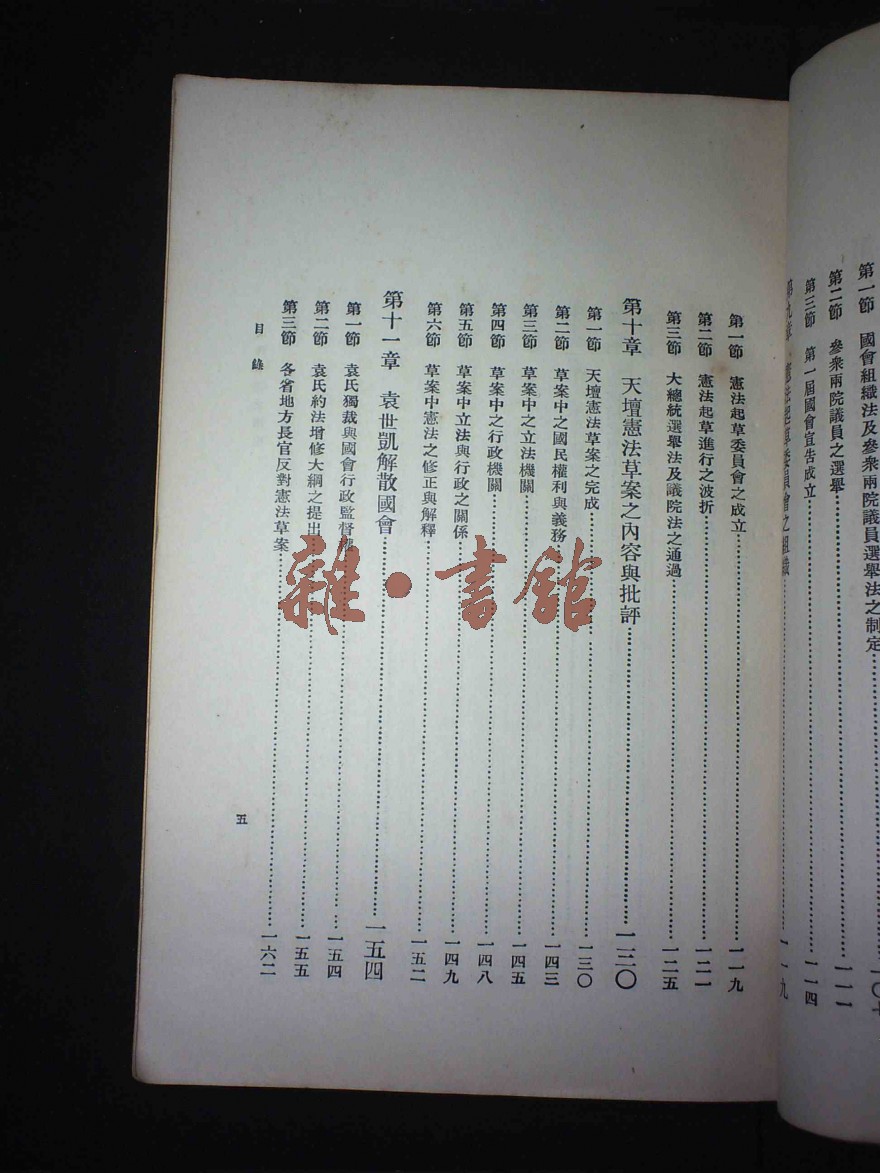 第一節　國會組織法及參衆兩院議員選舉法之制定
第二節　參衆兩院議員之選舉……一一一
第三節　第一屆國會宣告成立……一一四
第九章　憲法起草委員會之組織……一一九
第一節　憲法起草委員會之成立……一一九
第二節　憲法起草進行之波折……一二一
第三節　大總統選舉法及議院法之通過……一二五
第十章　天壇憲法草案之內容與批評……一三〇
第一節　天壇憲法草案之完成……一三〇
第二節　草案中之國民權利與義務……一四三
第三節　草案中之立法機關……一四五
第四節　草案中之行政機關……一四八
第五節　草案中立法與行政之關係……一四九
第六節　草案中憲法之修正與解釋……一五二
第十一章　袁世凱解散國會……一五四
第一節　袁氏獨裁與國會行政監督……一五四
第二節　袁氏約法增修大綱之提出……一五五
第三節　各省地方長官反對憲法草案……一六二
目錄
五
雜·書館